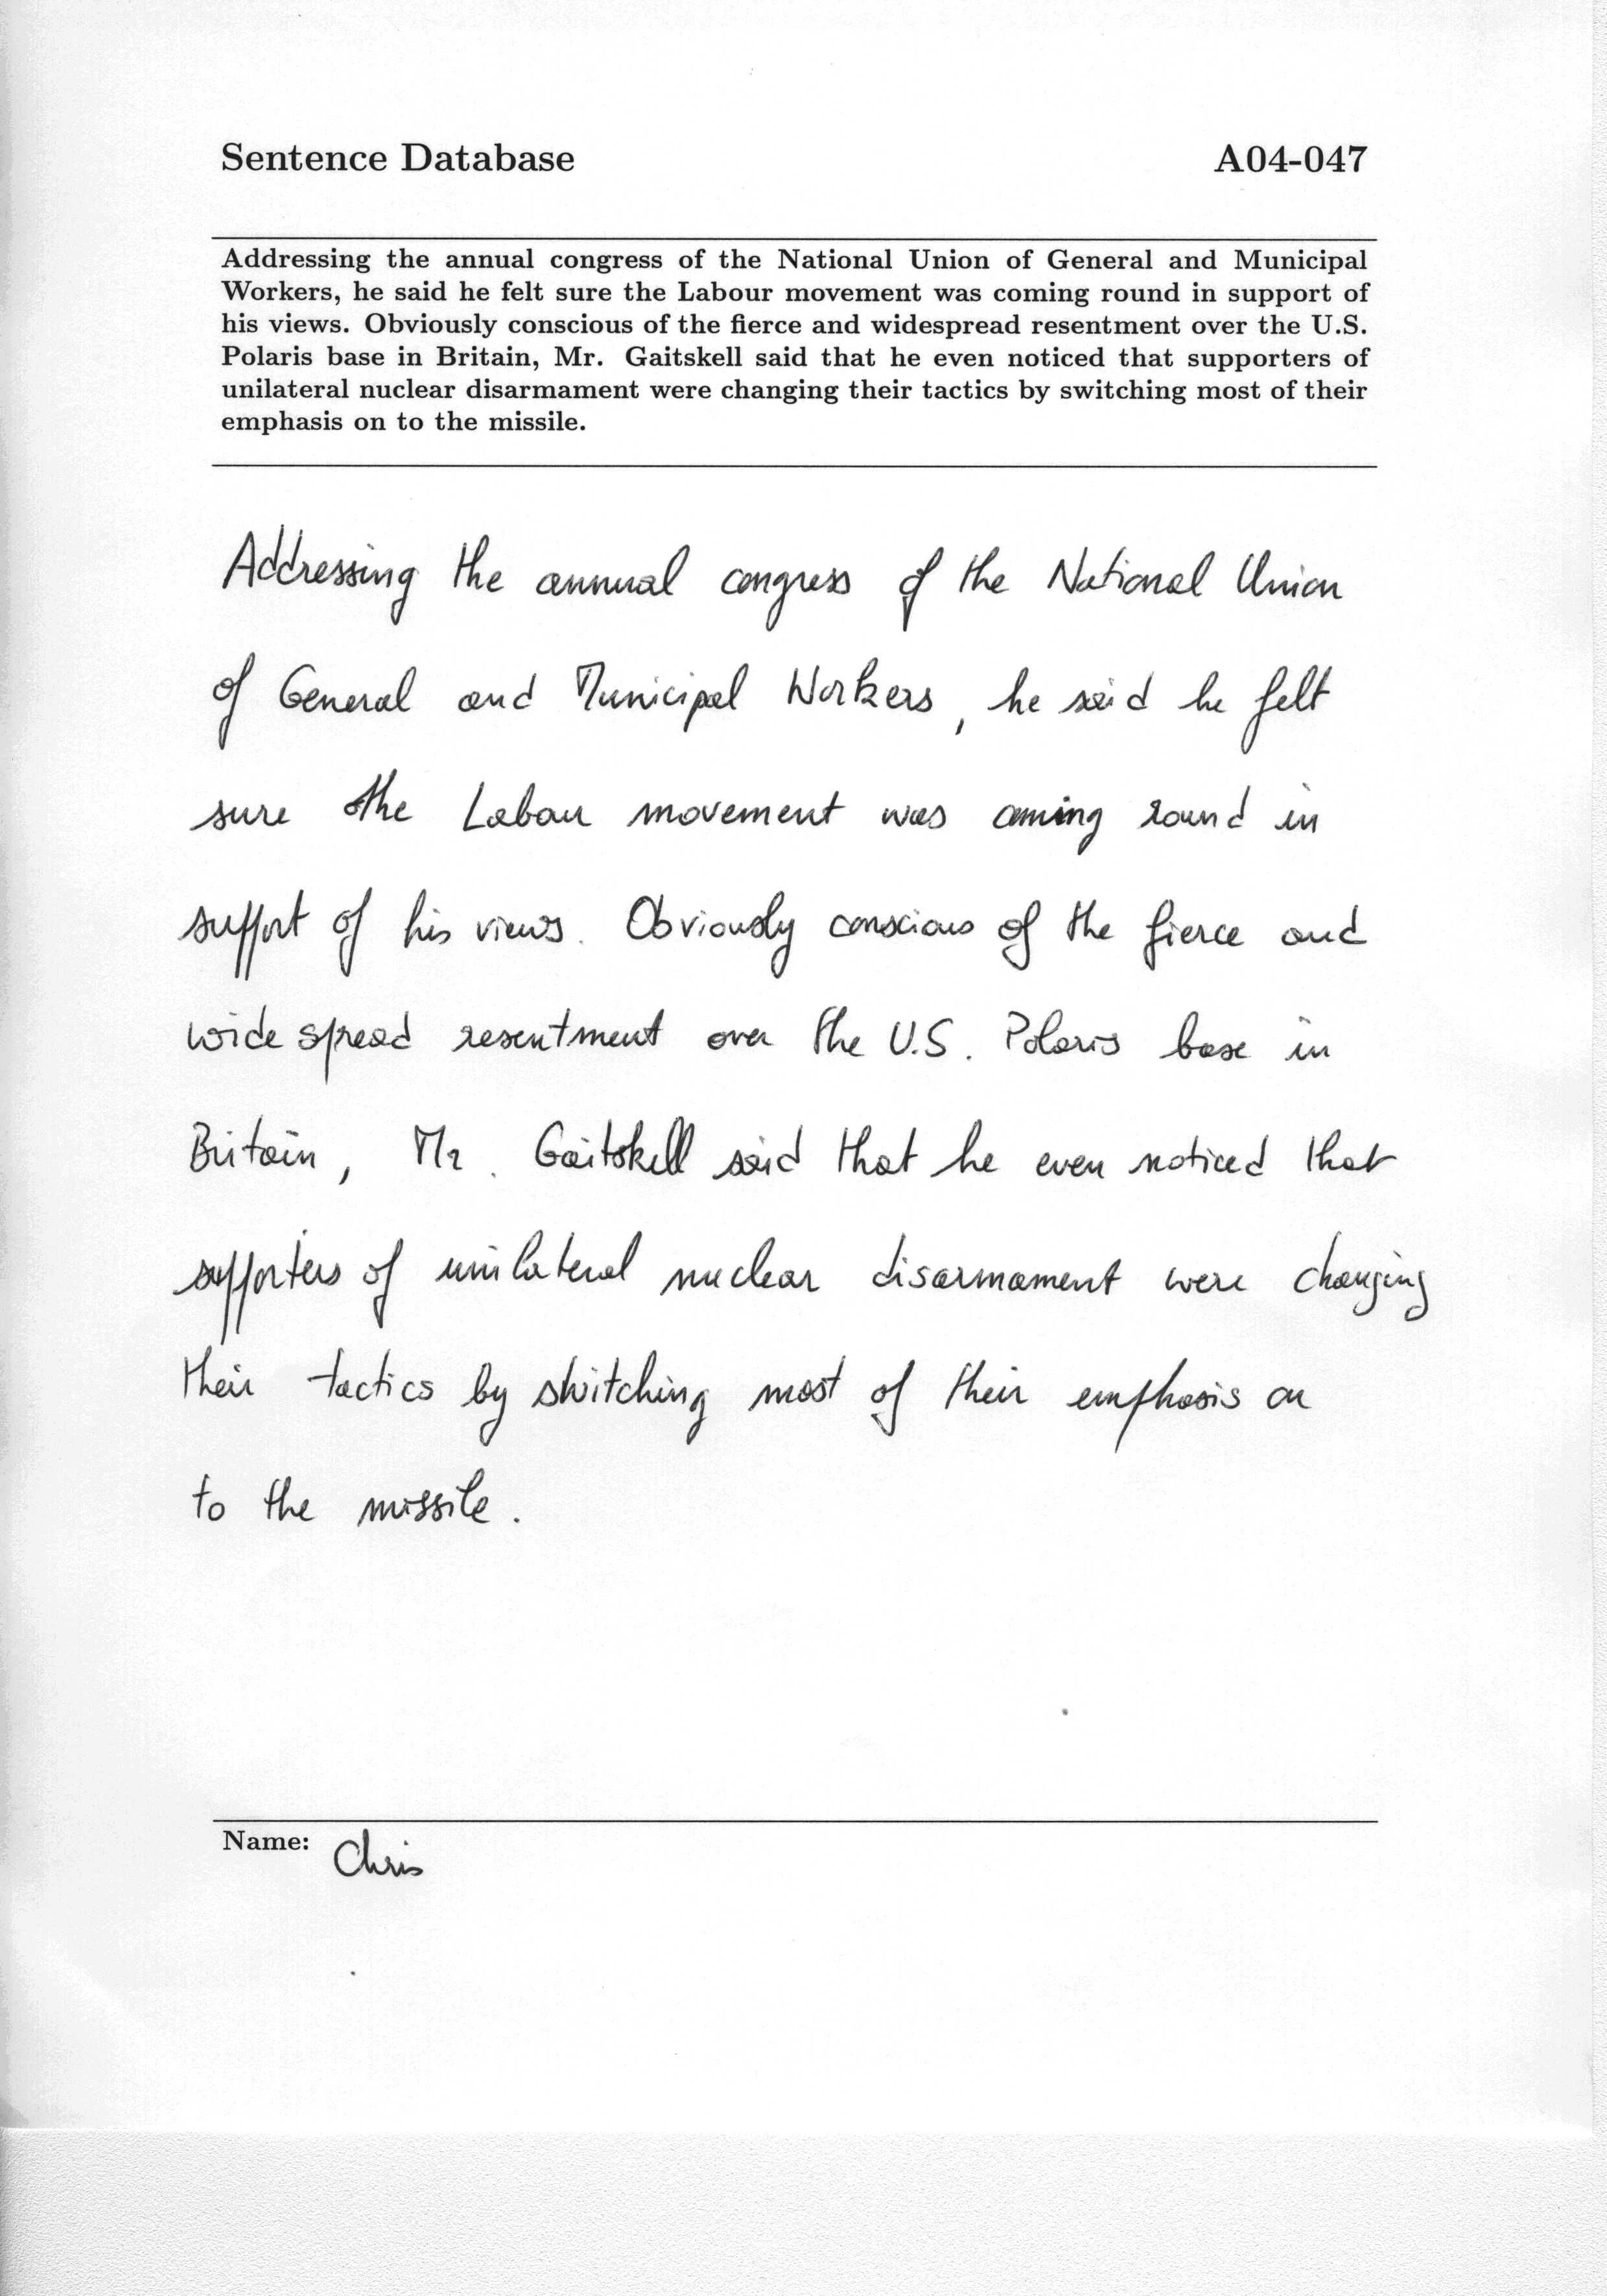 Sentence Database A04-047
Addressing the annual congress of the National Union of General and Municipal
Workers, he said he felt sure the Labour movement was coming round in support of
his views. Obviously conscious of the fierce and widespread resentment over the U.S.
Polaris base in Britain, Mr. Gaitskell said that he even noticed that supporters of
unilateral nuclear disarmament were changing their tactics by switching most of their
emphasis on to the missile.
Addressing the annual congress of the National Union
of General and Municipal Workers, he said he felt
sure the Labour movement was coming round in
support of his views. Obviously conscious of the fierce and
wide spread resentment over the U.S. Polaris base in
Britain, Mr. Gaitskell said that he even noticed that
supporters of unilateral nuclear disarmament were changing
their tactics by switching most of their emphasis on
to the missile.
Name: Chris